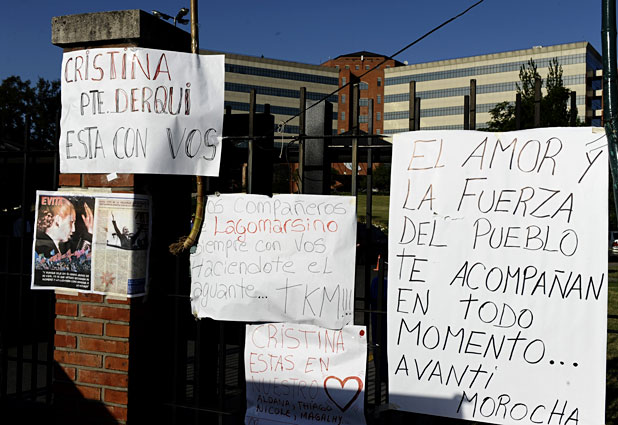 CRISTINA
PTE. DERQUI
ESTA CON VOS
EVITA
LOS COMPAÑEROS
de LAGOMARSINO
siempre con vos
HACIENDOTE EL
aguante... TKM!!!
CRISTINA
ESTAS EN
NUESTRO
ALDANA, THIAGO
NICOLE, MAGALHY
EL AMOR Y
LA FUERZA
DEL PUEBLO
TE ACOMPAÑAN
EN TODO
MOMENTO...
AVANTI
MOROCHA